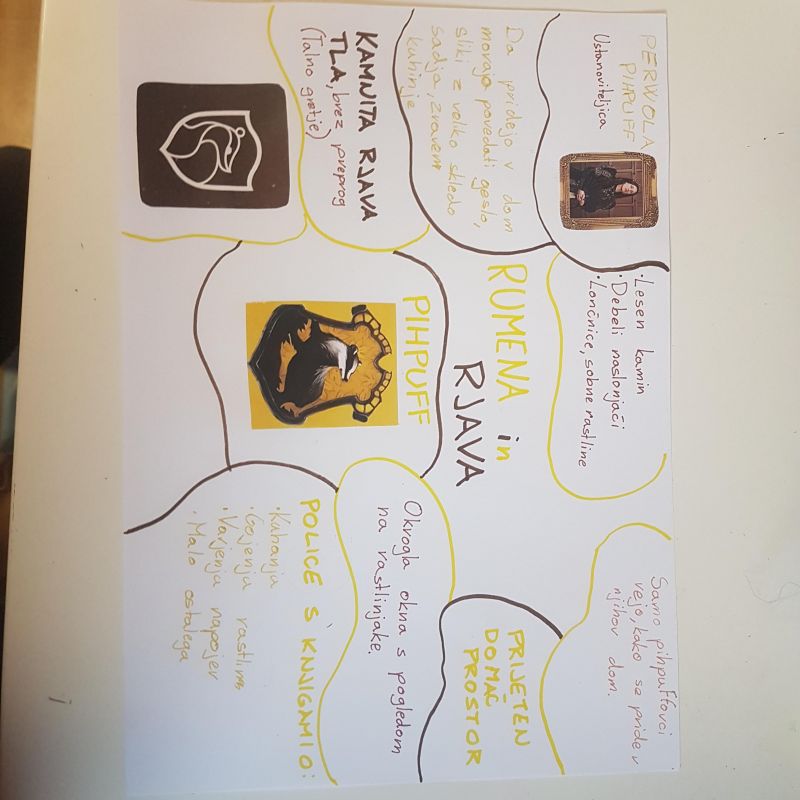 PERWOLA
PIHPUFF
Ustanoviteljica
Da pridejo v dom
morajo povedati geslo,
sliki z veliko skledo
sadja, zraven
kuhinje
KAMNITA RJAVA
TLA, brez preprog
(Talno gretje)
• Lesen kamin
• Debeli naslonjači
• Lončnice, sobne rastline
RUMENA in
RJAVA
PIHPUFF
Samo pihpuffovci
vejo, kako se pride v
njihov dom.
PRIJETEN
DOMAČ
PROSTOR
Okrogla okna s pogledom
na rastlinjake.
POLICE S KNJIGAMI O:
• Kuhanju
• Gojenju rastlin
• Varjenju napojev
• Malo ostalega